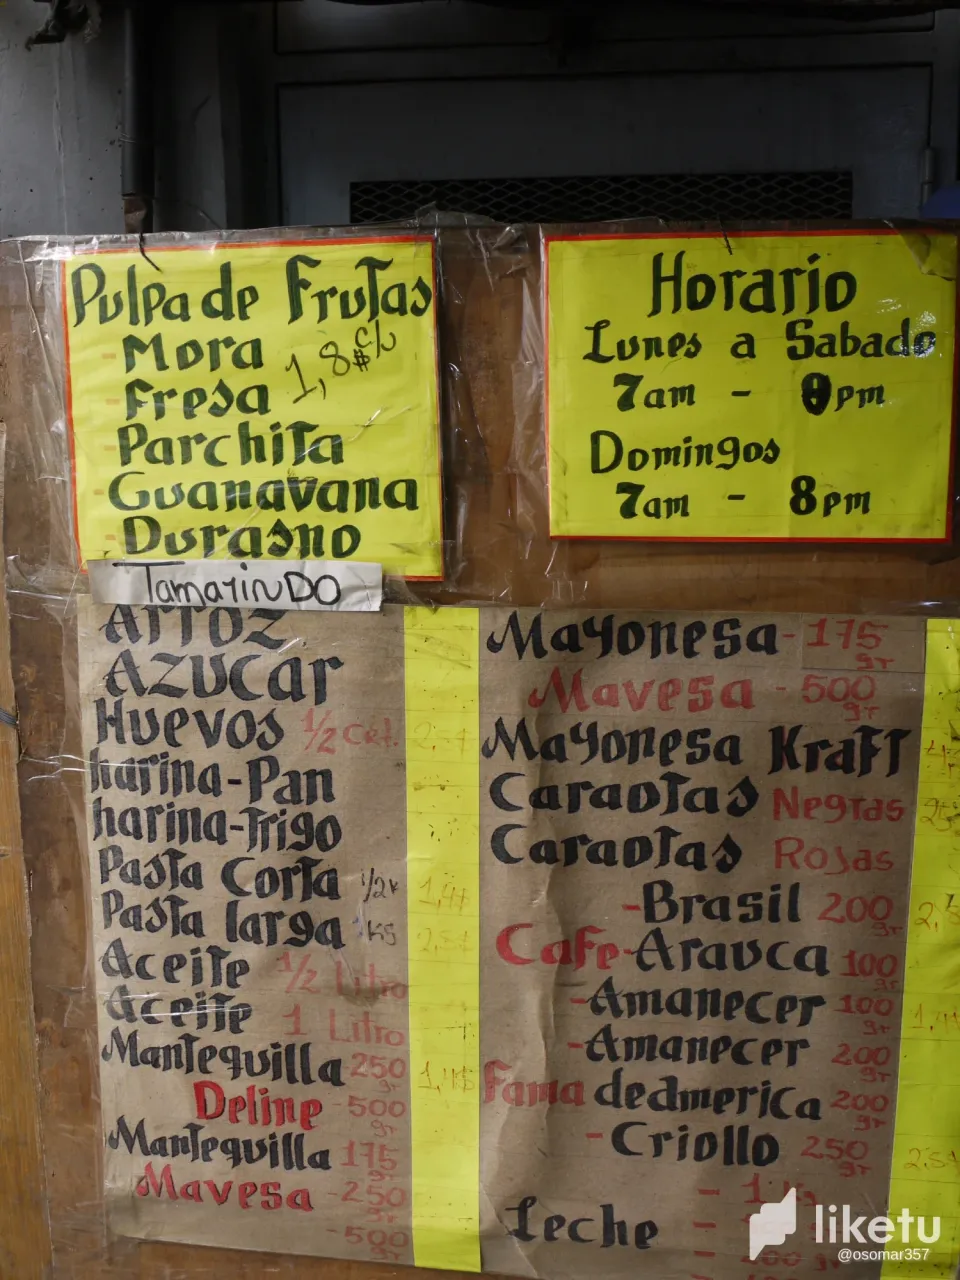 Pulpa de Frutas
- Mora 1,8$ c/u
- Fresa
- Parchita
- Guanavana
- Durasno
Tamarindo
Horario
Lunes a Sabado
7am - 9pm
Domingos
7am - 8pm
Arroz
Azucar
Huevos 1/2 Cat.
harina-Pan
harina-Trigo
Pasta Corta 1/2 K
Pasta larga KG
Aceite 1/2 Litro
Aceite 1 Litro
Mantequilla 250 gr
Deline - 500 gr
Mantequilla 175 gr
Mavesa - 250 gr
- 500 gr
Mayonesa - 175 gr
Mavesa - 500 gr
Mayonesa Kraft
Caraotas Negras
Caraotas Rojas
- Brasil 200 gr
Cafe - Arauca 100 gr
- Amanecer 100 gr
- Amanecer 200 gr
Fama dedmerica 200 gr
- Criollo 250 gr
Leche
liketu
@osomar357